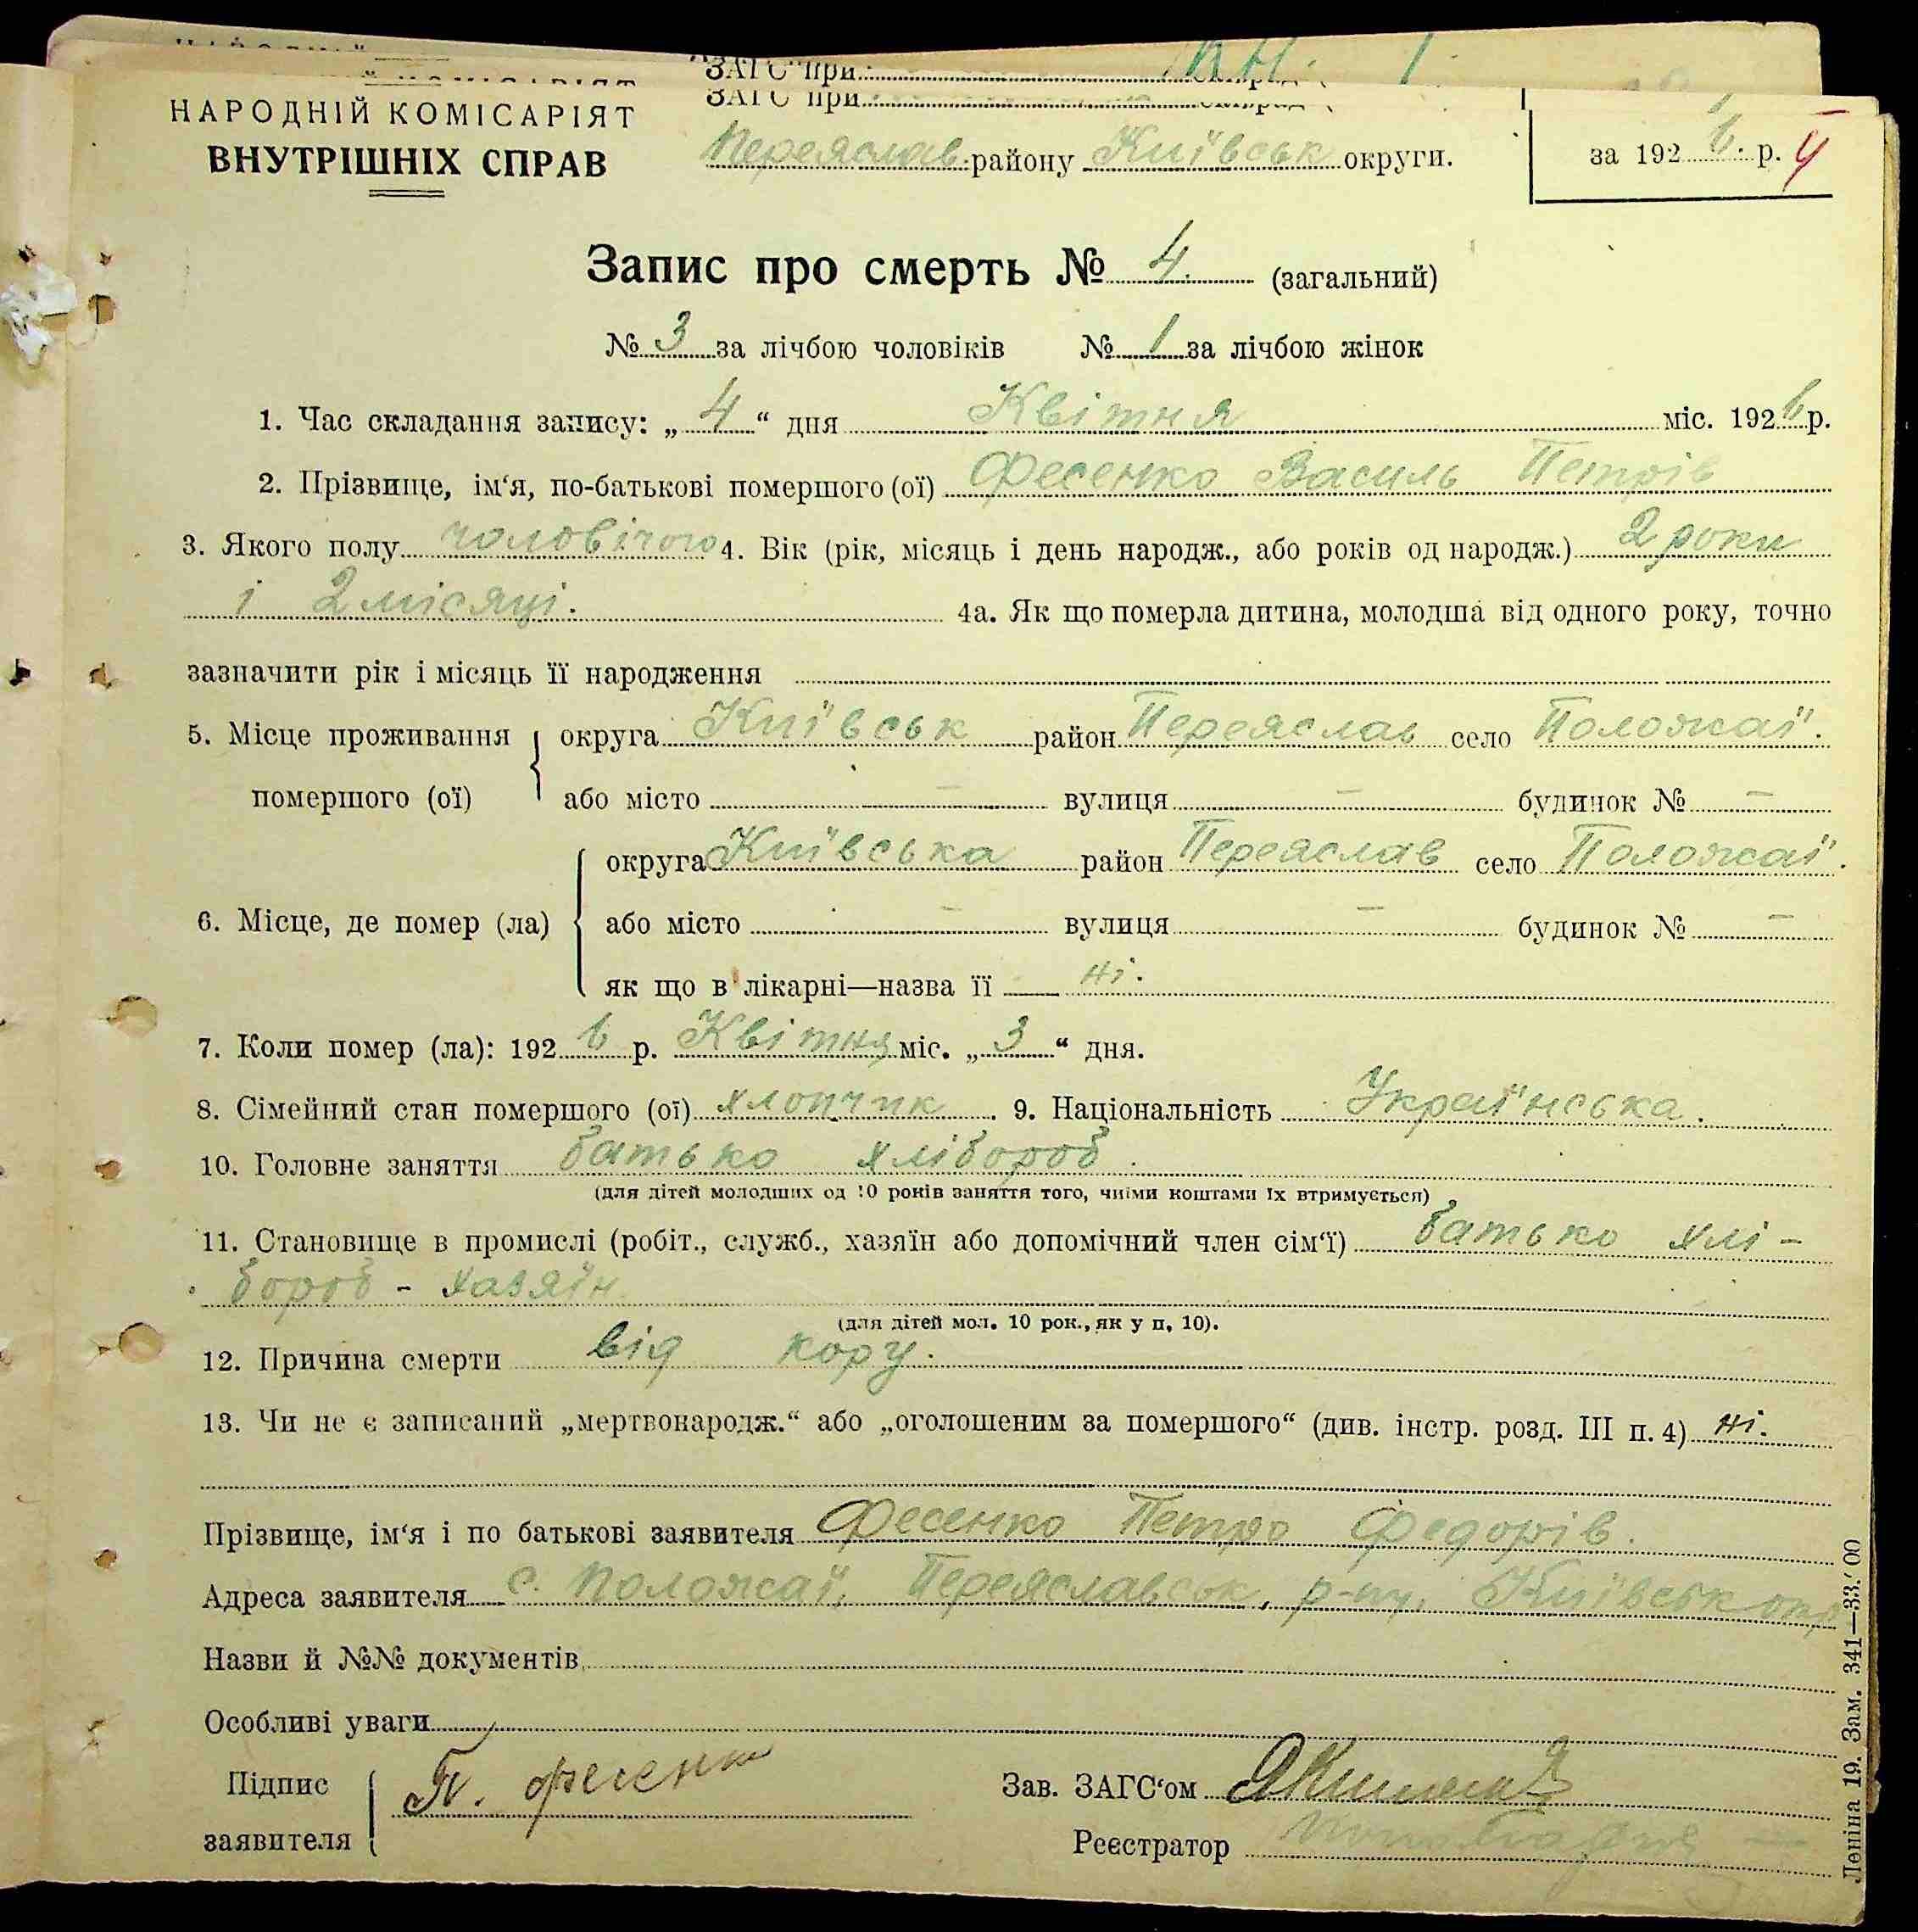 ЗАГС при
ЗАГС при
НАРОДНІЙ КОМІСАРІЯТ
ВНУТРІШНІХ СПРАВ
Переяслав. району Київськ округи.
за 1926. р. 4
Запис про смерть № 4. (загальний)
№ 3 за лічбою чоловіків № 1 за лічбою жінок
1. Час складання запису: „4“ дня Квітня міс. 1926 р.
2. Прізвище, ім‘я, по-батькові помершого (ої) Фесенко Василь Петрів
3. Якого полу чоловічого 4. Вік (рік, місяць і день народж., або років од народж.) 2 роки
і 2 місяці. 4а. Як що померла дитина, молодша від одного року, точно
зазначити рік і місяць її народження
5. Місце проживання помершого (ої) округа Київськ район Переяслав село Положаї.
або місто – вулиця – будинок № –
6. Місце, де помер (ла) округа Київська район Переяслав село Положаї.
або місто – вулиця – будинок № –
як що в лікарні—назва її ні.
7. Коли помер (ла): 1926 р. Квітня міс. „3“ дня.
8. Сімейний стан помершого (ої) хлопчик. 9. Національність Українська.
10. Головне заняття батько хлібороб.
(для дітей молодших од 10 років заняття того, чиїми коштами їх втримується)
11. Становище в промислі (робіт., служб., хазяїн або допомічний член сім‘ї) батько хлі-
бороб - хазяїн
(для дітей мол. 10 рок., як у п. 10).
12. Причина смерти від кору.
13. Чи не є записаний „мертвонародж.“ або „оголошеним за помершого“ (див. інстр. розд. III п. 4) ні.
Прізвище, ім‘я і по батькові заявителя Фесенко Петро Федорів.
Адреса заявителя с. Положаї, Переяславськ, р-ну, Київськ окр
Назви й №№ документів
Особливі уваги
Підпис заявителя П. Фесенко
Зав. ЗАГС‘ом
Реєстратор
Леніна 19. Зам. 341—33.